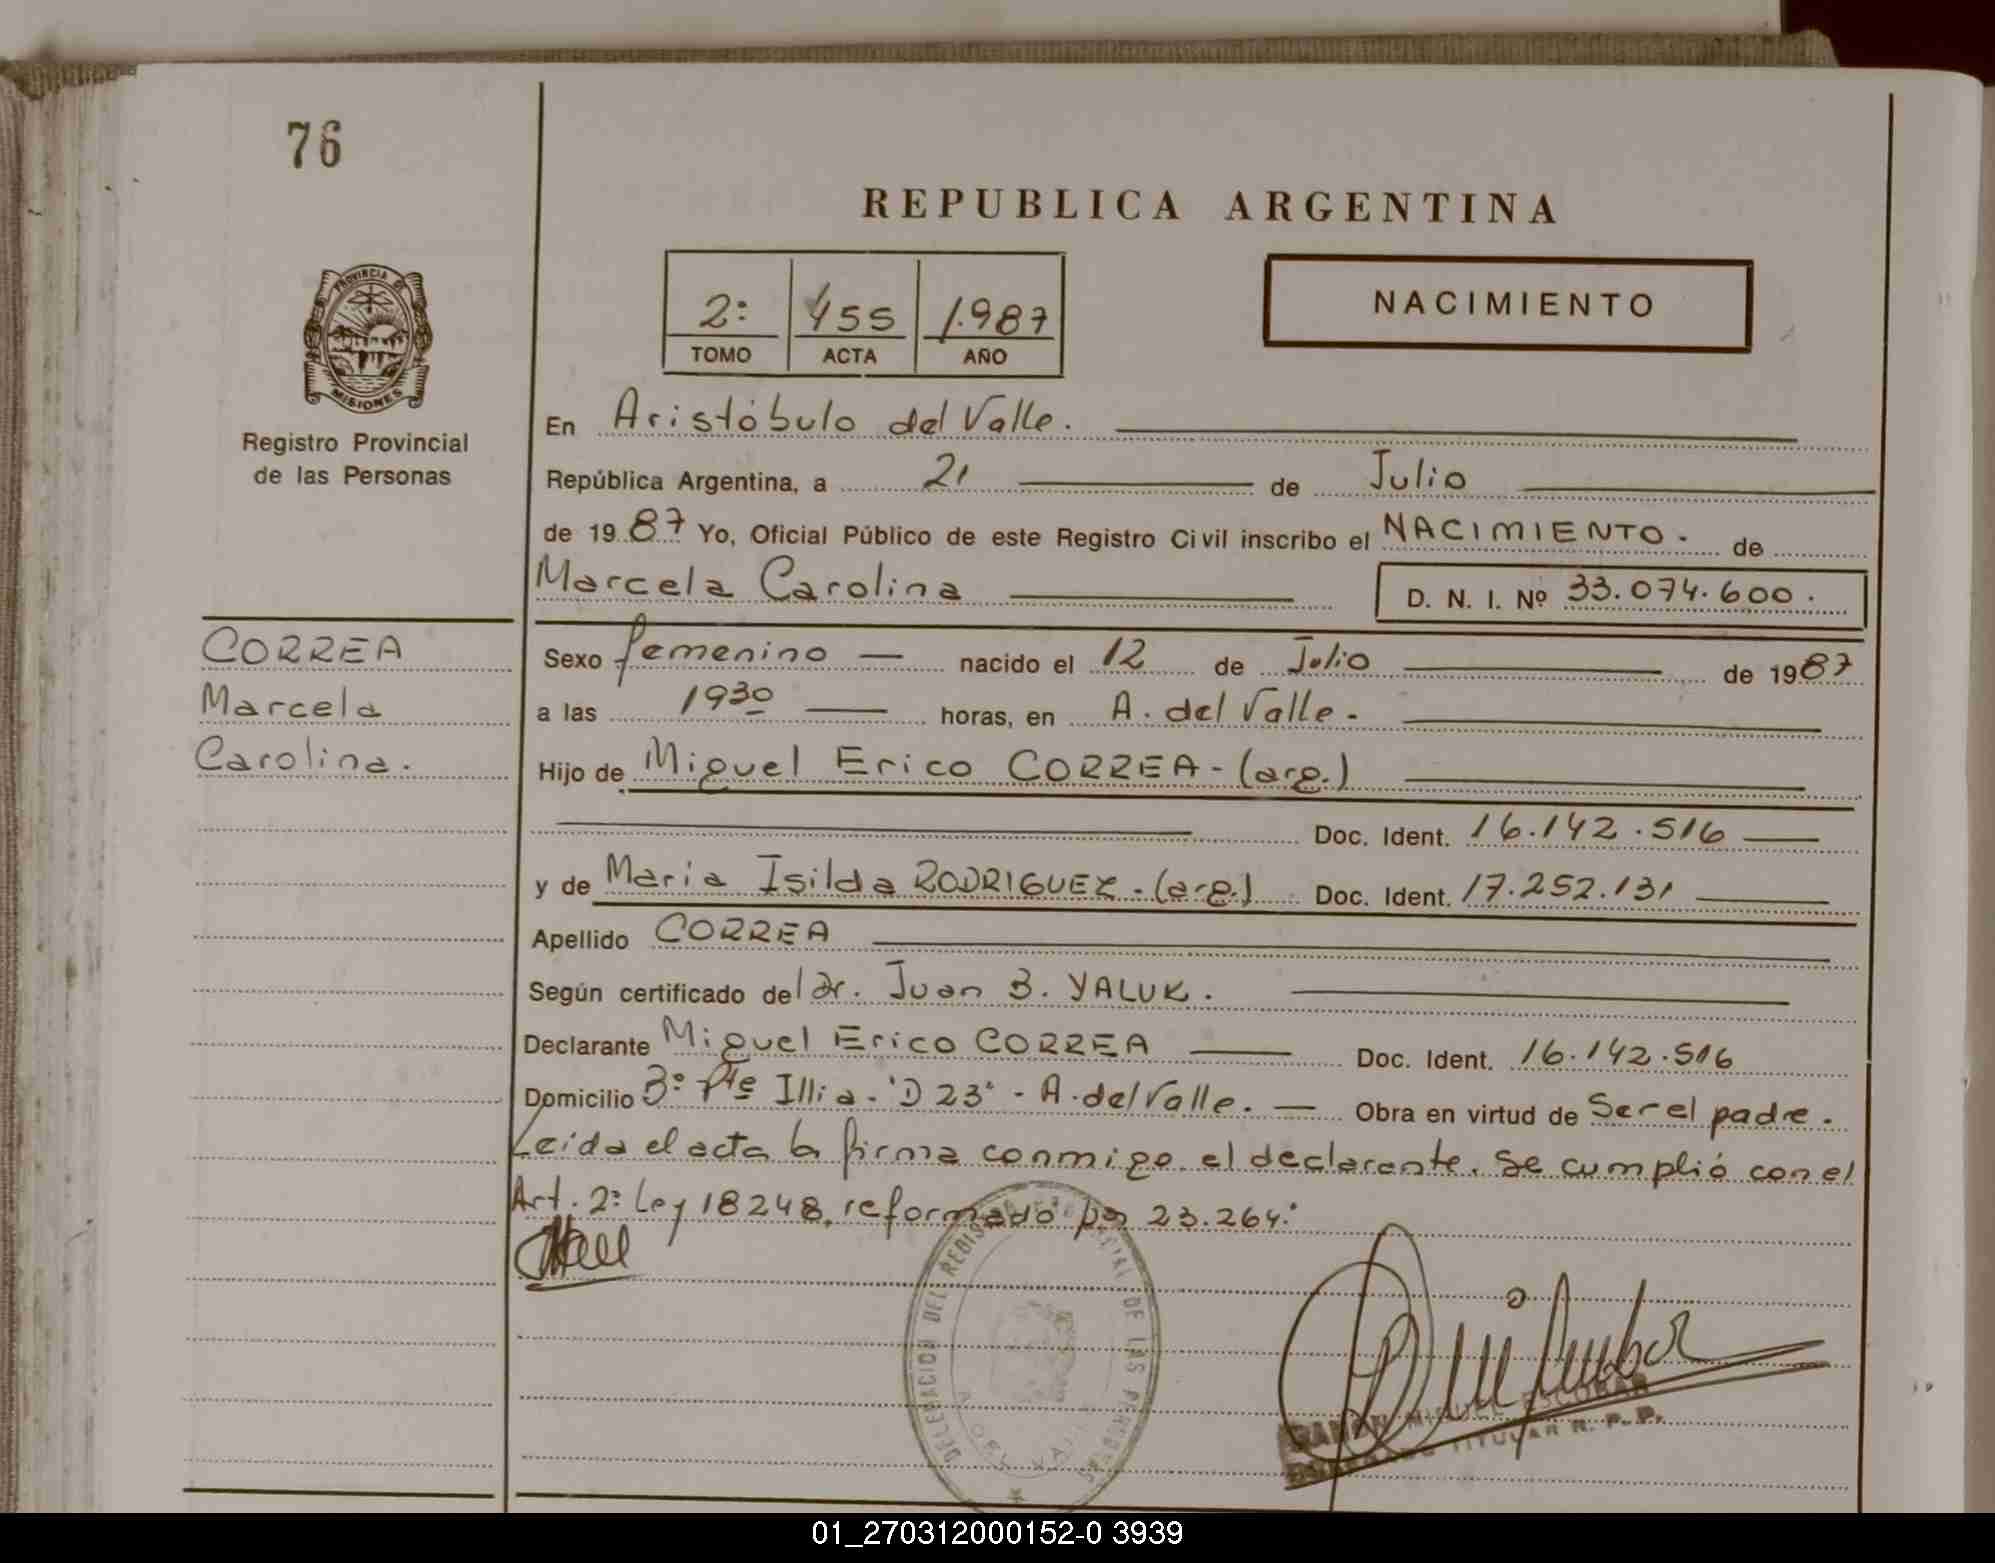 76
REPUBLICA ARGENTINA
2: 455 1.987
TOMO ACTA AÑO
NACIMIENTO
PROVINCIA DE
MISIONES
Registro Provincial
de las Personas
En Aristóbulo del Valle.
República Argentina, a 21 de Julio
de 1987 Yo, Oficial Público de este Registro Civil inscribo el NACIMIENTO. de
Marcela Carolina D. N. I. Nº 33.074.600.
CORREA
Marcela
Carolina.
Sexo femenino — nacido el 12 de Julio de 1987
a las 1930 horas, en A. del Valle.
Hijo de Miguel Erico CORREA - (arg.)
Doc. Ident. 16.142.516
y de Maria Isilda RODRIGUEZ - (arg.) Doc. Ident. 17.252.131
Apellido CORREA
Según certificado del Dr. Juan B. YALUK.
Declarante Miguel Erico CORREA Doc. Ident. 16.142.516
Domicilio Bº Pte Illia - "D 23" - A. del Valle. — Obra en virtud de Ser el padre.
Leída el acta la firma conmigo el declarante. Se cumplió con el
Art. 2: Ley 18248, reformado por 23.264.
DELEGACION DEL REGISTRO PROVINCIAL DE LAS PERSONAS
A. DEL VALLE
RAMON MIGUEL ESCOBAR
TITULAR R. P. P.
01_270312000152-0 3939